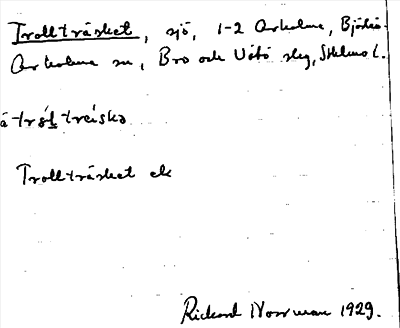 Trollträsket, sjö, 1-2 Arholma, Björkö-
Arholma sn, Bro och Vätö slg, Sthlms l.
Trollträsket ek
Rickard Norrman 1929.